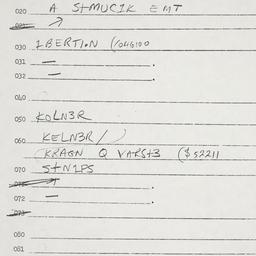 020 A StMUCIK EMT
030 IBERTION
031 — .
032 — .
040
050 KOLN3R
060 KELN3R/
KRAGN Q VARSt3 ($52211
070 StN1PS
072 — .
073
080
081